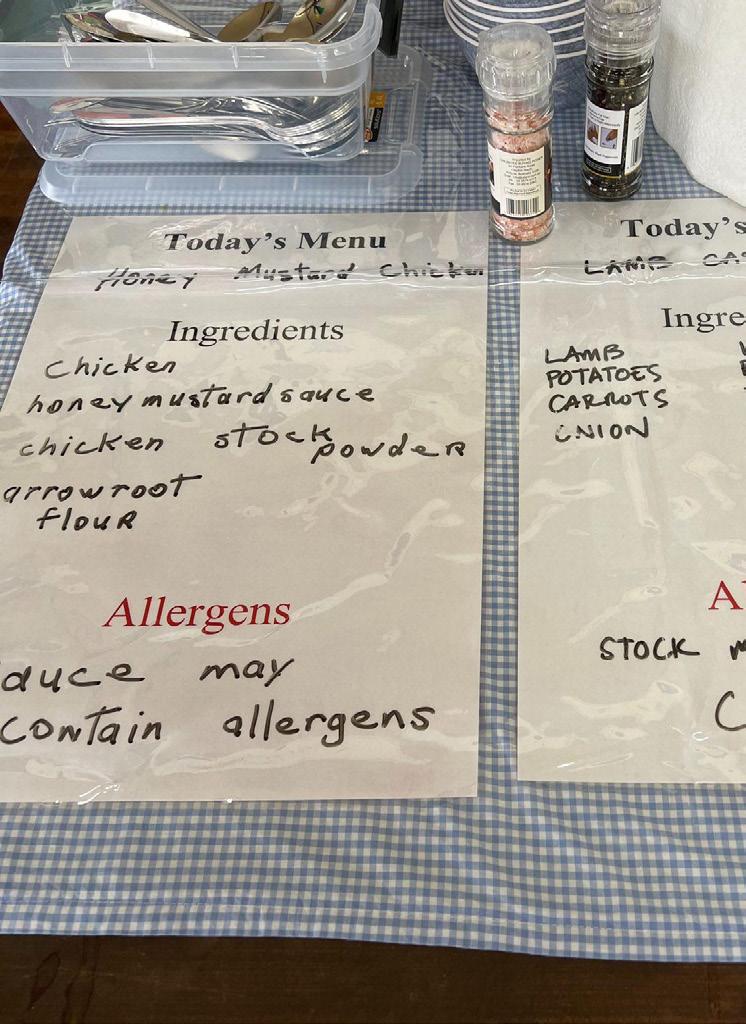 Today's Menu
Honey Mustard Chicken
Ingredients
Chicken
honey mustard sauce
chicken stock powder
arrowroot
flour
Allergens
auce may
contain allergens
Today's
LAMB CAS
Ingre
LAMB
POTATOES
CARROTS
ONION
Al
STOCK m
C